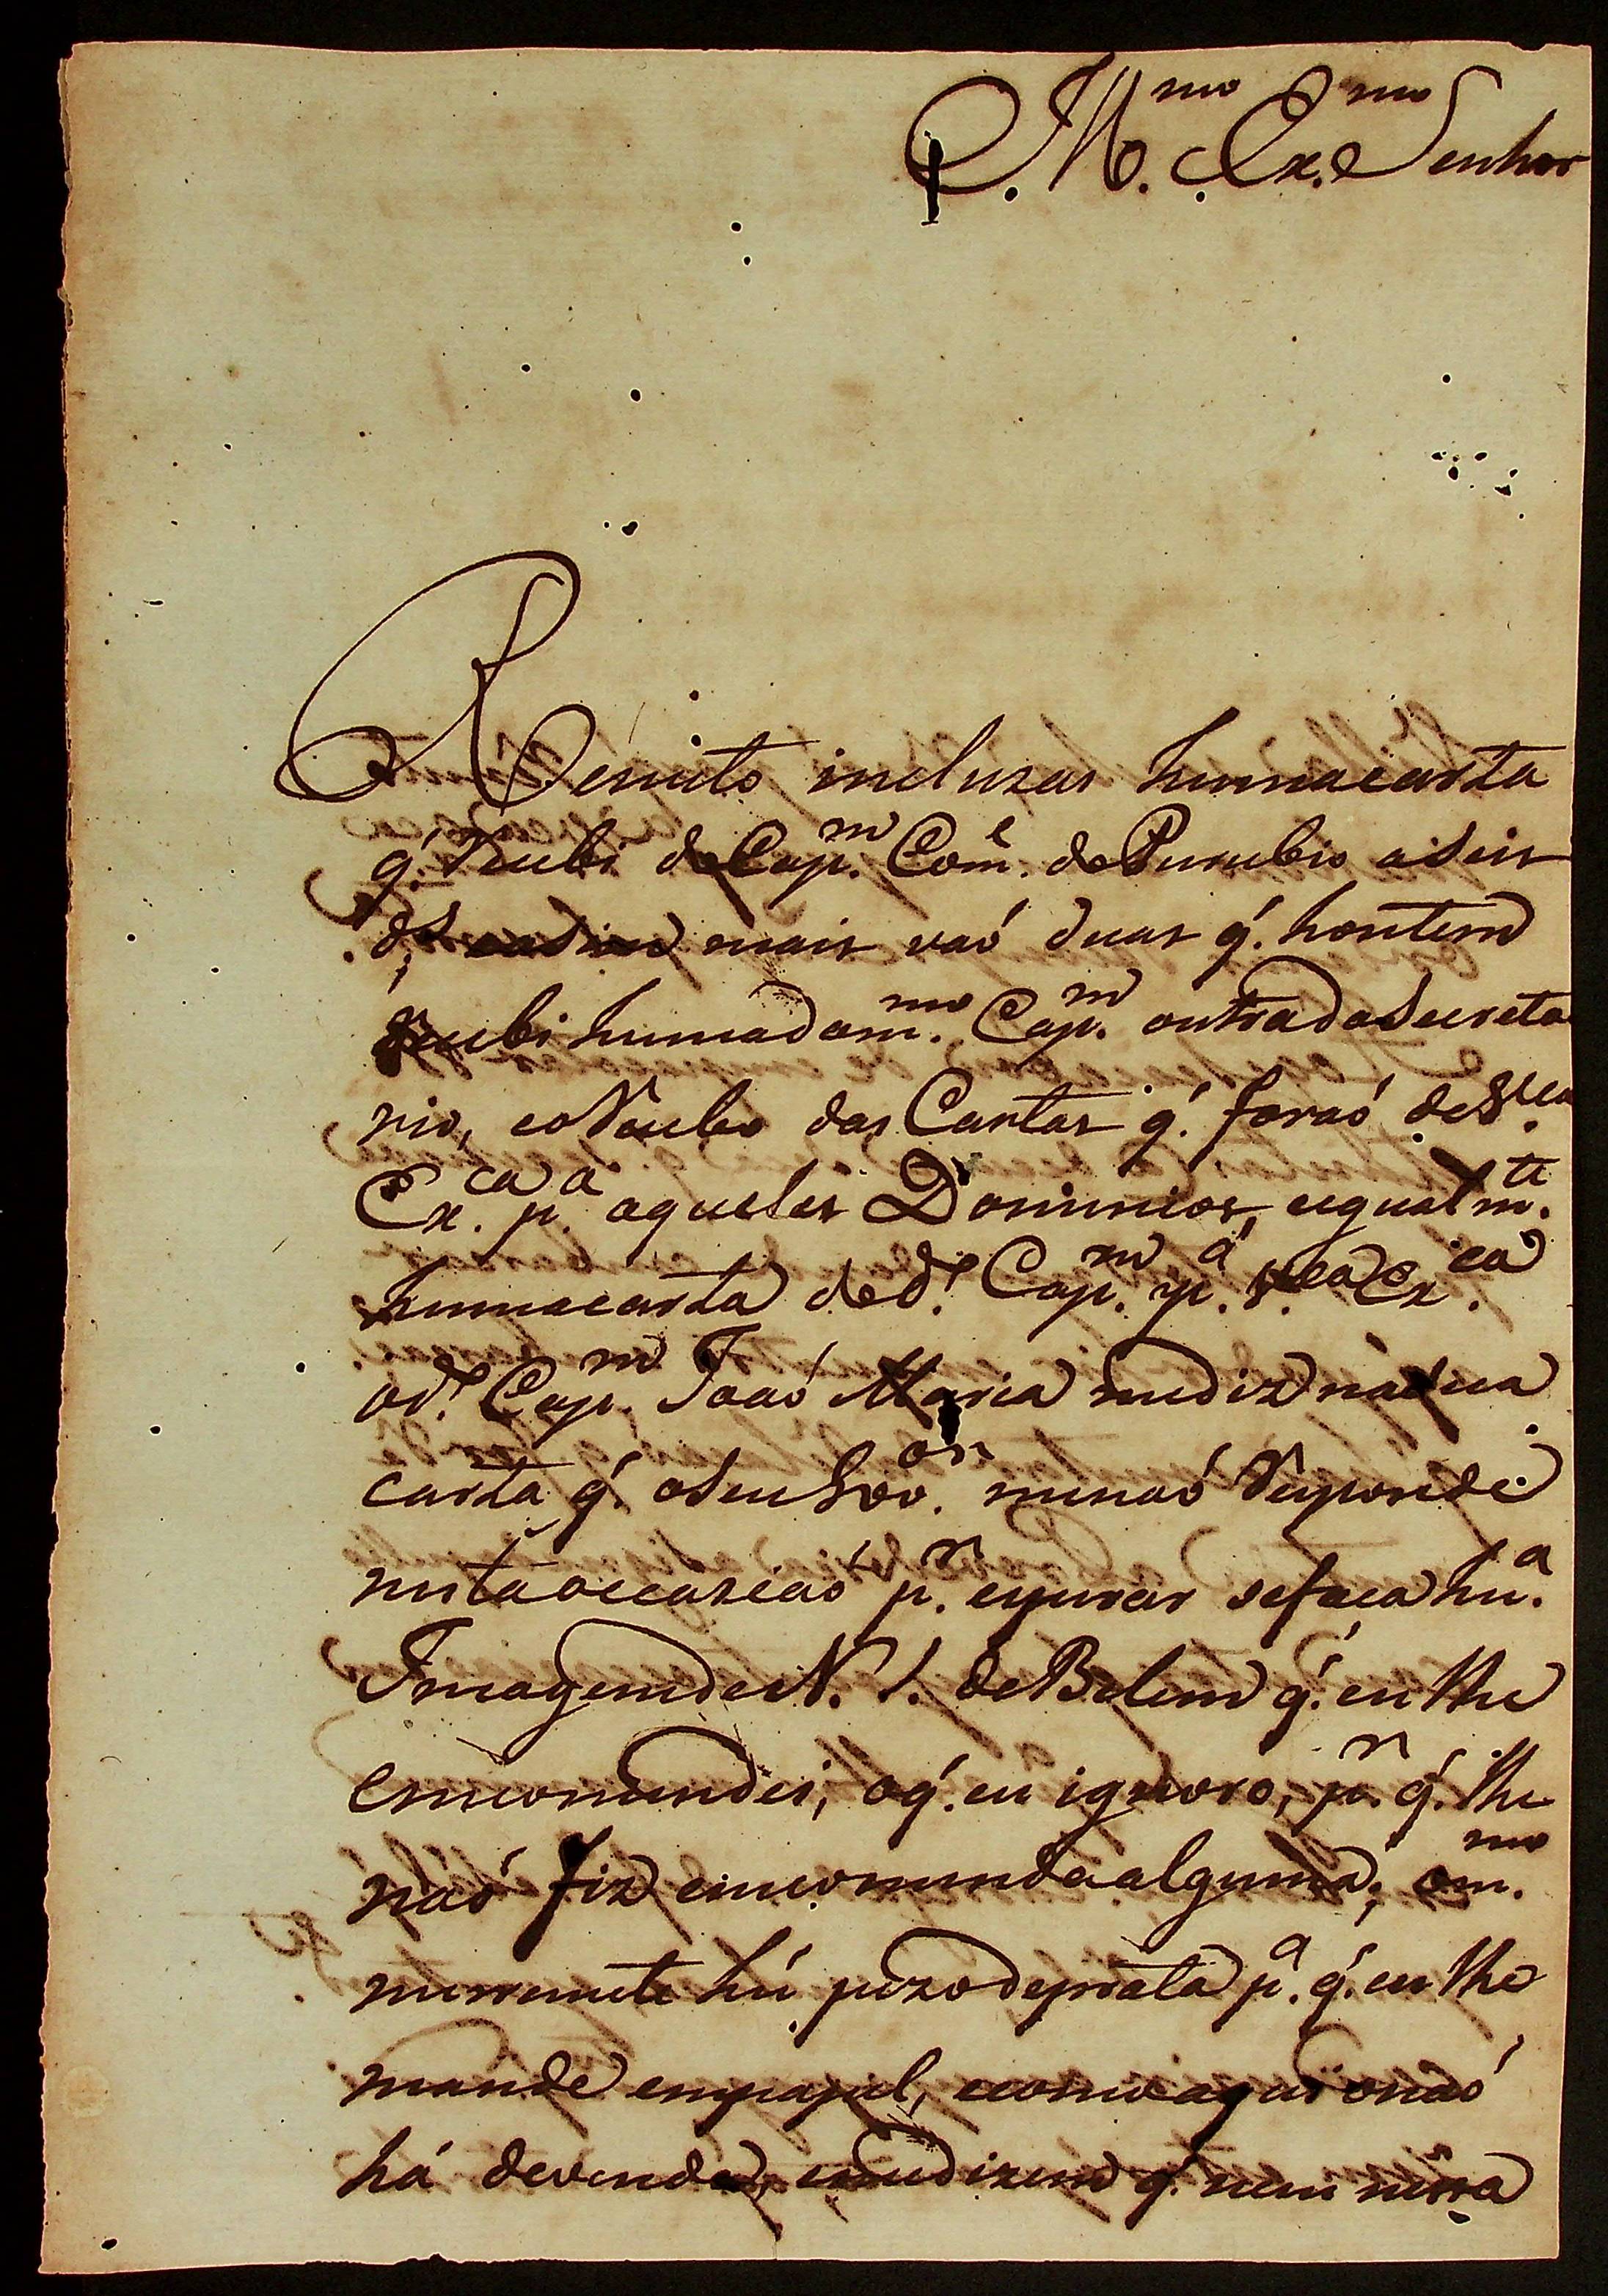 Il.mo Ex.mo Senhor
Remeto incluzas humacarta
q́. Recebi do Cap.m Com.e de Purubio aseis
d.o easim mais vaó duas q́. hontem
Recebi humadom.mo Cap.m outrada Secreta
rio, eoRecibo das Cartas q́. foraó de V.ca
Ex.ca p.a aqueles Dominios, eigualm.te
humacarta dod.o Cap.m p.a V.ca Ex.ca
od.o Cap.m Joaó Maria mediz nasua
carta q́. oSeu Gov.or menaó Responde
nestaoccasiaó p.r esperar sefaca hú.a
Imagemde N. S. de Belem q́. eu lhe
emcomendei, oq́. eu ignoro, p.r q́. lhe
naó fiz emcomendaalguma; om.mo
meremete hú pezodeprata p.a q́. eu lhe
mande empapel, ecomoaqui onaó
há devenda, emedizem q́. nem nessa